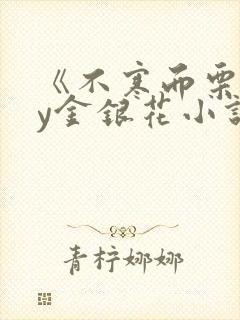 《不寒而栗
y金银花小说
青柠娜娜